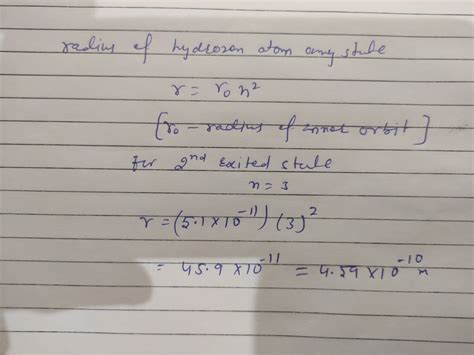 radius of hydrozen atom any state
r = r₀ n²
[r₀ - radius of inner orbit]
for 2nd Exited state
n = 3
r = (5.1 × 10⁻¹¹) (3)²
= 45.9 × 10⁻¹¹ = 4.59 × 10⁻¹⁰ m